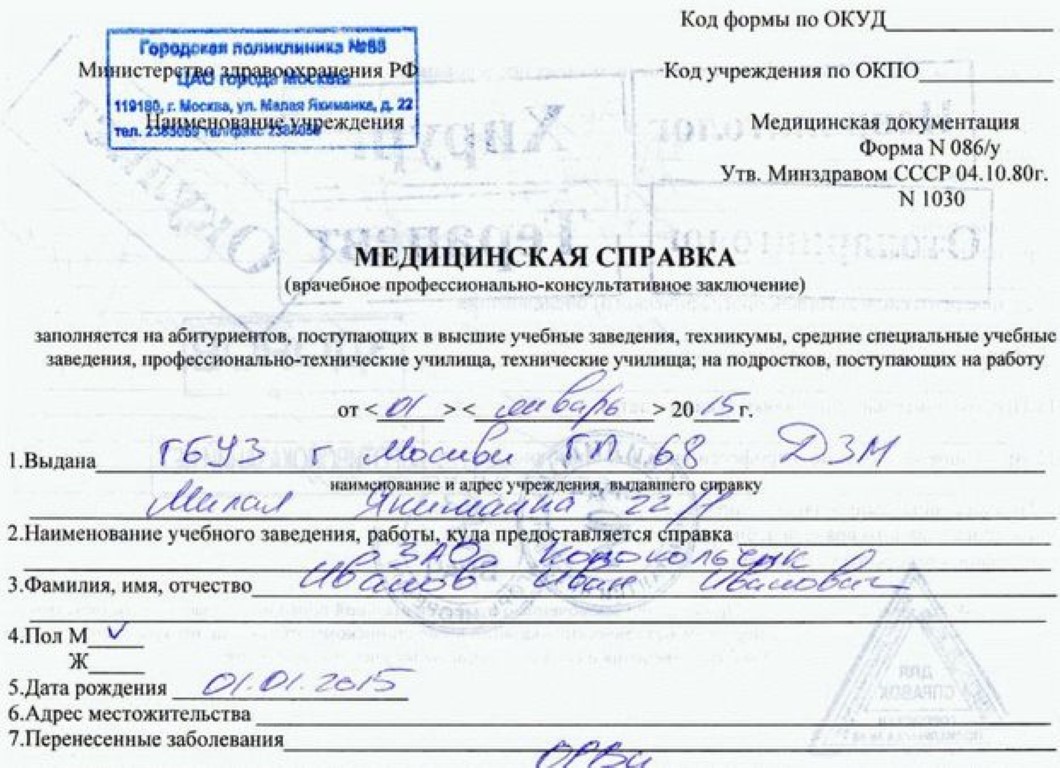 Код формы по ОКУД
Городская поликлиника №68
ЦАО города Москвы
119180, г. Москва, ул. Малая Якиманка, д. 22
тел. 2385059 тел/факс
Министерство здравоохранения РФ
Код учреждения по ОКПО
Наименование учреждения
Медицинская документация
Форма N 086/у
Утв. Минздравом СССР 04.10.80г.
N 1030
Хирург
Терапевт
Окулист
МЕДИЦИНСКАЯ СПРАВКА
(врачебное профессионально-консультативное заключение)
заполняется на абитуриентов, поступающих в высшие учебные заведения, техникумы, средние специальные учебные
заведения, профессионально-технические училища, технические училища; на подростков, поступающих на работу
от < 01 > < январь > 20 15 г.
1.Выдана ГБУЗ г Москвы ГП 68 ДЗМ
наименование и адрес учреждения, выдавшего справку
Малая Якиманка 22
2.Наименование учебного заведения, работы, куда предоставляется справка
ЗАО Колокольчик
3.Фамилия, имя, отчество Иванов Иван Иванович
4.Пол М ✓
Ж
5.Дата рождения 01.01.2015
6.Адрес местожительства
7.Перенесенные заболевания
ОРВИ
ДЛЯ
СПРАВОК